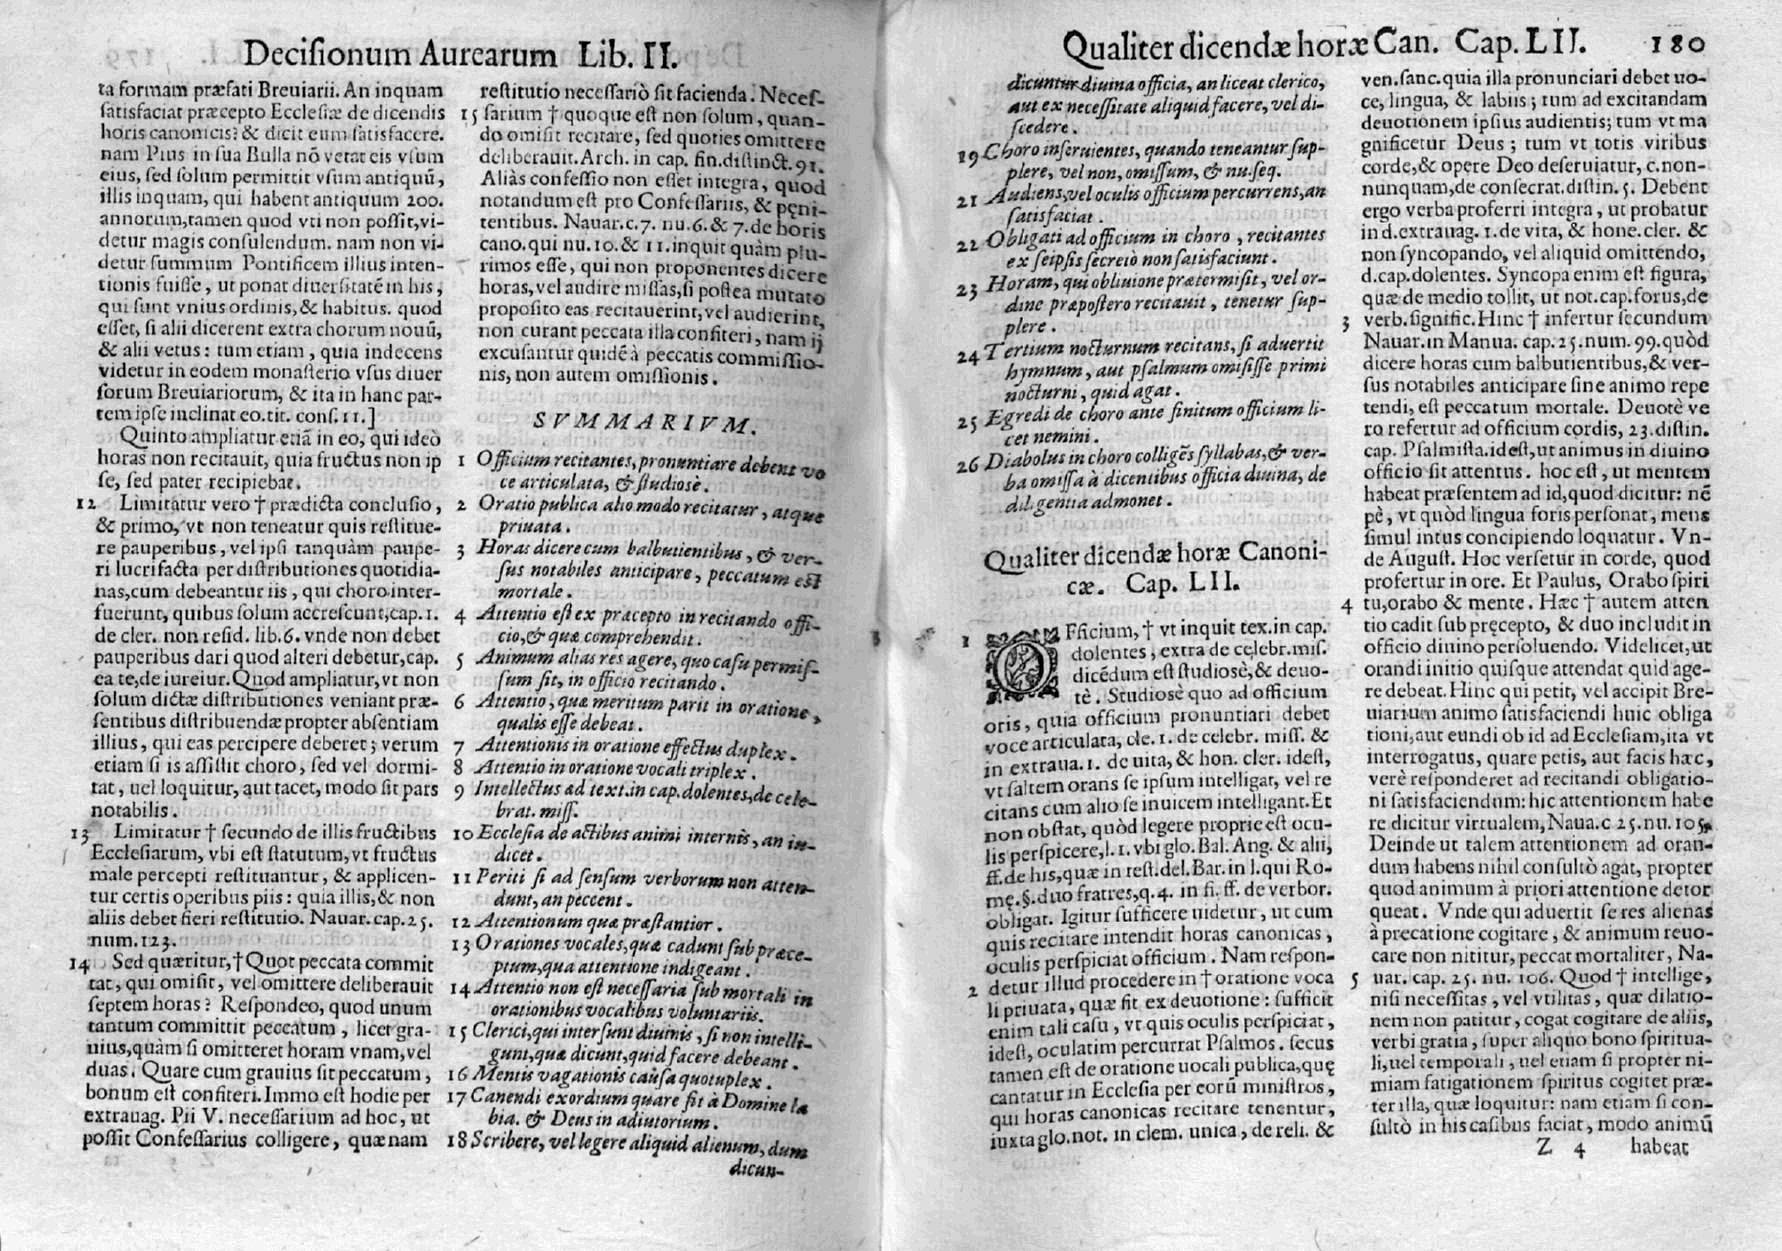 Decisionum Aurearum Lib. II.
ta formam præfati Breuiarii. An inquam
satisfaciat præcepto Ecclesiæ de dicendis
horis canonicis? & dicit eum satisfacere.
nam Pius in sua Bulla nō vetat eis vsum
eius, sed solum permittit vsum antiquū,
illis inquam, qui habent antiquum 200.
annorum, tamen quod vti non possit, vi-
detur magis consulendum. nam non vi-
detur summum Pontificem illius inten-
tionis fuisse, ut ponat diuersitatē in his,
qui sunt vnius ordinis, & habitus. quod
esset, si alii dicerent extra chorum nouū,
& alii vetus: tum etiam, quia indecens
videtur in eodem monasterio vsus diuer
sorum Breuiariorum, & ita in hanc par-
tem ipse inclinat eo. tit. cons. 11.]
Quinto ampliatur etiā in eo, qui ideò
horas non recitauit, quia fructus non ip
se, sed pater recipiebat.
12 Limitatur vero † prædicta conclusio,
& primo, vt non teneatur quis restitue-
re pauperibus, vel ipsi tanquàm paupe-
ri lucrifacta per distributiones quotidia-
nas, cum debeantur iis, qui choro inter-
fuerunt, quibus solum accrescunt, cap. 1.
de cler. non resid. lib. 6. vnde non debet
pauperibus dari quod alteri debetur, cap.
ea te, de iureiur. Quod ampliatur, vt non
solum dictæ distributiones veniant præ-
sentibus distribuendæ propter absentiam
illius, qui eas percipere deberet; verum
etiam si is assistit choro, sed vel dormi-
tat, uel loquitur, aut tacet, modo sit pars
notabilis.
13 Limitatur † secundo de illis fructibus
Ecclesiarum, vbi est statutum, vt fructus
male percepti restituantur, & applicen-
tur certis operibus piis: quia illis, & non
aliis debet fieri restitutio. Nauar. cap. 25.
num. 123.
14 Sed quæritur, † Quot peccata commit
tat, qui omisit, vel omittere deliberauit
septem horas? Respondeo, quod unum
tantum committit peccatum, licet gra-
uius, quàm si omitteret horam vnam, vel
duas. Quare cum grauius sit peccatum,
bonum est confiteri. Immo est hodie per
extrauag. Pii V. necessarium ad hoc, ut
possit Confessarius colligere, quænam
restitutio necessariò sit facienda. Neces-
15 sarium † quoque est non solum, quan-
do omisit recitare, sed quoties omittere
deliberauit. Arch. in cap. fin. distinct. 91.
Aliàs confessio non esset integra, quod
notandum est pro Confessariis, & pęni-
tentibus. Nauar. c. 7. nu. 6. & 7. de horis
cano. qui nu. 10. & 11. inquit quàm plu-
rimos esse, qui non proponentes dicere
horas, vel audire missas, si postea mutato
proposito eas recitauerint, vel audierint,
non curant peccata illa confiteri, nam ij
excusantur quidē à peccatis commissio-
nis, non autem omissionis.
SVMMARIVM.
1 Officium recitantes, pronuntiare debent vo
ce articulata, & studiosè.
2 Oratio publica alio modo recitatur, atque
priuata.
3 Horas dicere cum balbutientibus, & ver-
sus notabiles anticipare, peccatum est
mortale.
4 Attentio est ex præcepto in recitando offi-
cio, & quæ comprehendit.
5 Animum alias res agere, quo casu permis-
sum sit, in officio recitando.
6 Attentio, quæ meritum parit in oratione,
qualis esse debeat.
7 Attentionis in oratione effectus duplex.
8 Attentio in oratione vocali triplex.
9 Intellectus ad text. in cap. dolentes, de cele-
brat. miss.
10 Ecclesia de actibus animi internis, an iu-
dicet.
11 Periti si ad sensum verborum non atten-
dunt, an peccent.
12 Attentionum quæ præstantior.
13 Orationes vocales, quæ cadunt sub præce-
ptum, qua attentione indigeant.
14 Attentio non est necessaria sub mortali in
orationibus vocalibus voluntariis.
15 Clerici, qui intersunt diuinis, si non intelli-
gunt, quæ dicunt, quid facere debeant.
16 Mentis vagationis causa quotuplex.
17 Canendi exordium quare fit à Domine la
bia. & Deus in adiutorium.
18 Scribere, vel legere aliquid alienum, dum
dicun-
Qualiter dicendæ horæ Can. Cap. LII. 180
dicuntur diuina officia, an liceat clerico,
aut ex necessitate aliquid facere, vel di-
scedere.
19 Choro inseruientes, quando teneantur sup-
plere, vel non, omissum, & nu. seq.
21 Audiens, vel oculis officium percurrens, an
satisfaciat.
22 Obligati ad officium in choro, recitantes
ex seipsis secretò non satisfaciunt.
23 Horam, qui obliuione prætermisit, vel or-
dine præpostero recitauit, tenetur sup-
plere.
24 Tertium nocturnum recitans, si aduertit
hymnum, aut psalmum omisisse primi
nocturni, quid agat.
25 Egredi de choro ante finitum officium li-
cet nemini.
26 Diabolus in choro colligēs syllabas, & ver-
ba omissa à dicentibus officia diuina, de
diligentia admonet.
Qualiter dicendæ horæ Canoni-
cæ. Cap. LII.
1 OFficium, † vt inquit tex. in cap.
dolentes, extra de celebr. mis.
dicēdum est studiosè, & deuo-
tè. Studiosè quo ad officium
oris, quia officium pronuntiari debet
voce articulata, cle. 1. de celebr. miss. &
in extraua. 1. de uita, & hon. cler. idest,
vt saltem orans se ipsum intelligat, vel re
citans cum alio se inuicem intelligant. Et
non obstat, quòd legere proprie est ocu-
lis perspicere, l. 1. vbi glo. Bal. Ang. & alii,
ff. de his, quæ in test. del. Bar. in l. qui Ro-
mę. §. duo fratres, q. 4. in fi. ff. de verbor.
obligat. Igitur sufficere uidetur, ut cum
quis recitare intendit horas canonicas,
oculis perspiciat officium. Nam respon-
2 detur illud procedere in † oratione voca
li priuata, quæ fit ex deuotione: sufficit
enim tali casu, vt quis oculis perspiciat,
idest, oculatim percurrat Psalmos. secus
tamen est de oratione uocali publica, quę
cantatur in Ecclesia per eorū ministros,
qui horas canonicas recitare tenentur,
iuxta glo. not. in clem. unica, de reli. &
ven. sanc. quia illa pronunciari debet uo-
ce, lingua, & labiis; tum ad excitandam
deuotionem ipsius audientis; tum vt ma
gnificetur Deus; tum vt totis viribus
corde, & opere Deo deseruiatur, c. non-
nunquam, de consecrat. distin. 5. Debent
ergo verba proferri integra, ut probatur
in d. extrauag. 1. de vita, & hone. cler. &
non syncopando, vel aliquid omittendo,
d. cap. dolentes. Syncopa enim est figura,
quæ de medio tollit, ut not. cap. forus, de
3 verb. signific. Hinc † infertur secundum
Nauar. in Manua. cap. 25. num. 99. quòd
dicere horas cum balbutientibus, & ver-
sus notabiles anticipare sine animo repe
tendi, est peccatum mortale. Deuotè ve
ro refertur ad officium cordis, 23. distin.
cap. Psalmista. idest, ut animus in diuino
officio sit attentus. hoc est, ut mentem
habeat præsentem ad id, quod dicitur: nē
pè, vt quòd lingua foris personat, mens
simul intus concipiendo loquatur. Vn-
de August. Hoc versetur in corde, quod
profertur in ore. Et Paulus, Orabo spiri
4 tu, orabo & mente. Hæc † autem atten
tio cadit sub pręcepto, & duo includit in
officio diuino persoluendo. Videlicet, ut
orandi initio quisque attendat quid age-
re debeat. Hinc qui petit, vel accipit Bre-
uiarium animo satisfaciendi huic obliga
tioni, aut eundi ob id ad Ecclesiam, ita vt
interrogatus, quare petis, aut facis hæc,
verè responderet ad recitandi obligatio-
ni satisfaciendum: hic attentionem habe
re dicitur virtualem, Naua. c 25. nu. 105.
Deinde ut talem attentionem ad oran-
dum habens nihil consultò agat, propter
quod animum à priori attentione detor
queat. Vnde qui aduertit se res alienas
à precatione cogitare, & animum reuo-
care non nititur, peccat mortaliter, Na-
5 uar. cap. 25. nu. 106. Quod † intellige,
nisi necessitas, vel vtilitas, quæ dilatio-
nem non patitur, cogat cogitare de aliis,
verbi gratia, super aliquo bono spiritua-
li, uel temporali, uel etiam si propter ni-
miam fatigationem spiritus cogitet præ-
ter illa, quæ loquitur: nam etiam si con-
sultò in his casibus faciat, modo animū
Z 4 habeat